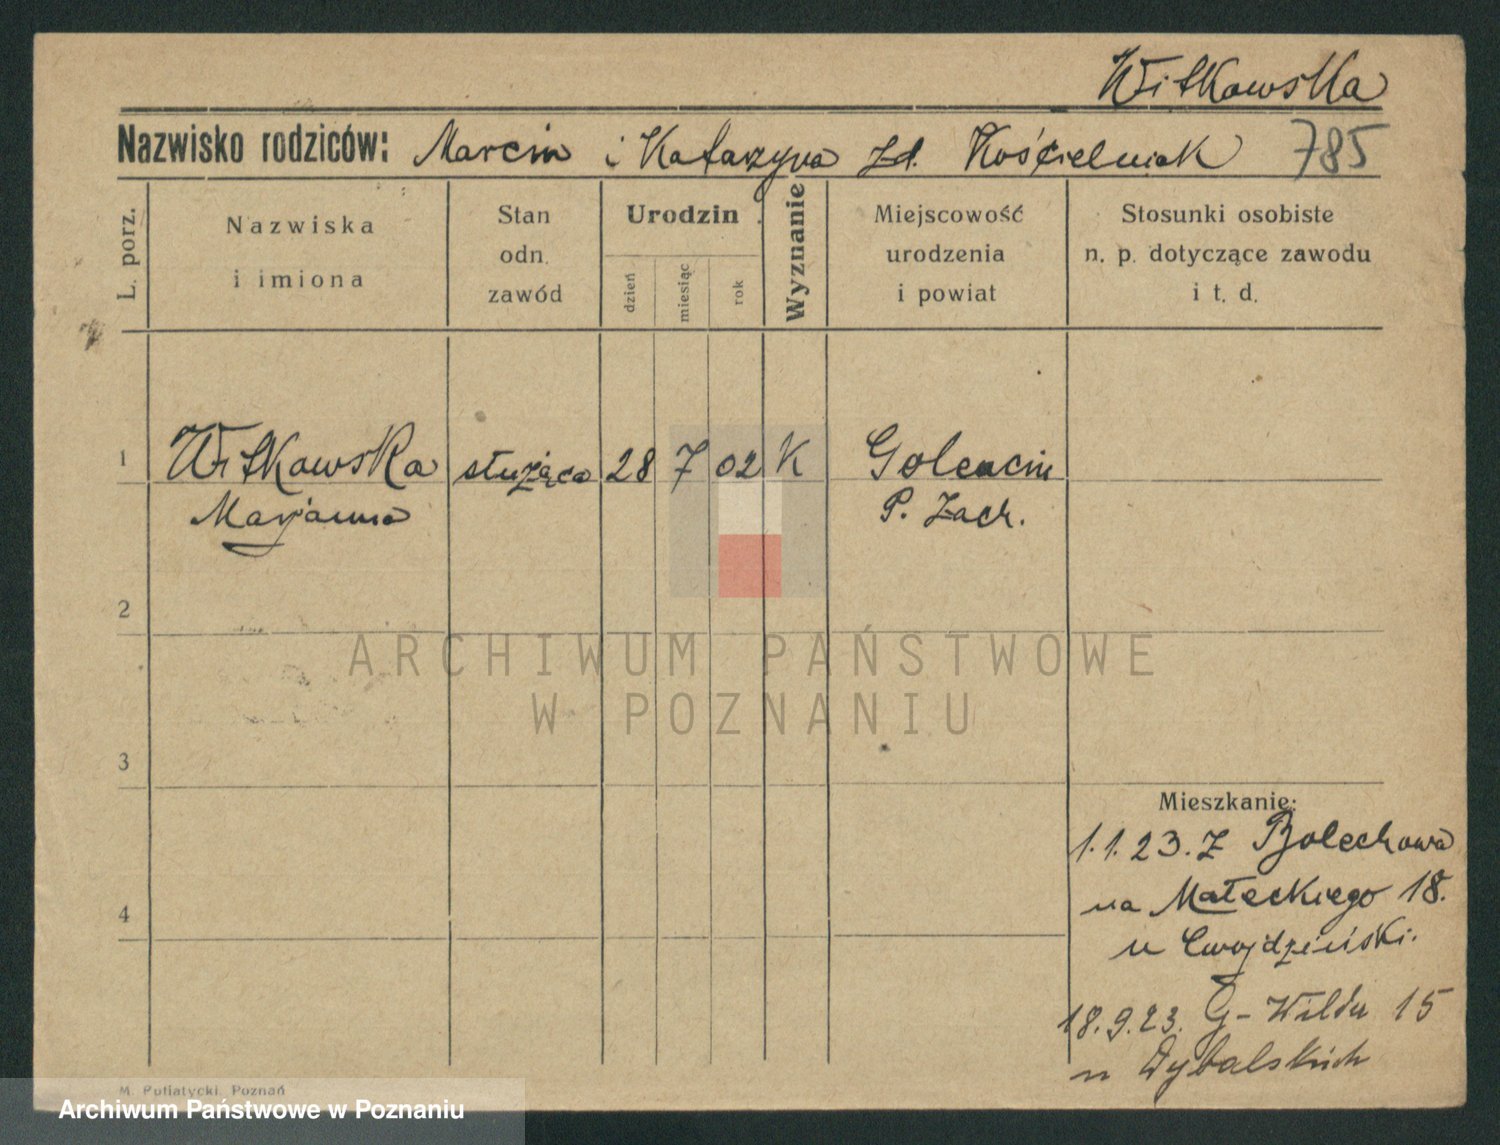 Witkowska
Nazwisko rodziców: Marcin i Katarzyna zd. Kościelniak 785
L. porz.
Nazwiska
i imiona
Stan
odn.
zawód
Urodzin
dzień
miesiąc
rok
Wyznanie
Miejscowość
urodzenia
i powiat
Stosunki osobiste
n. p. dotyczące zawodu
i t. d.
1 Witkowska służąca 28 7 02 K Golencin
Marjanna P. Zach.
2
3
4
Mieszkanie:
1.1.23. Z Bolechowa
na Małeckiego 18.
u Cwojdziński.
18.9.23. G-Wilda 15
u Dybalskich
M. Putiatycki, Poznań
ARCHIWUM PAŃSTWOWE
W POZNANIU
Archiwum Państwowe w Poznaniu